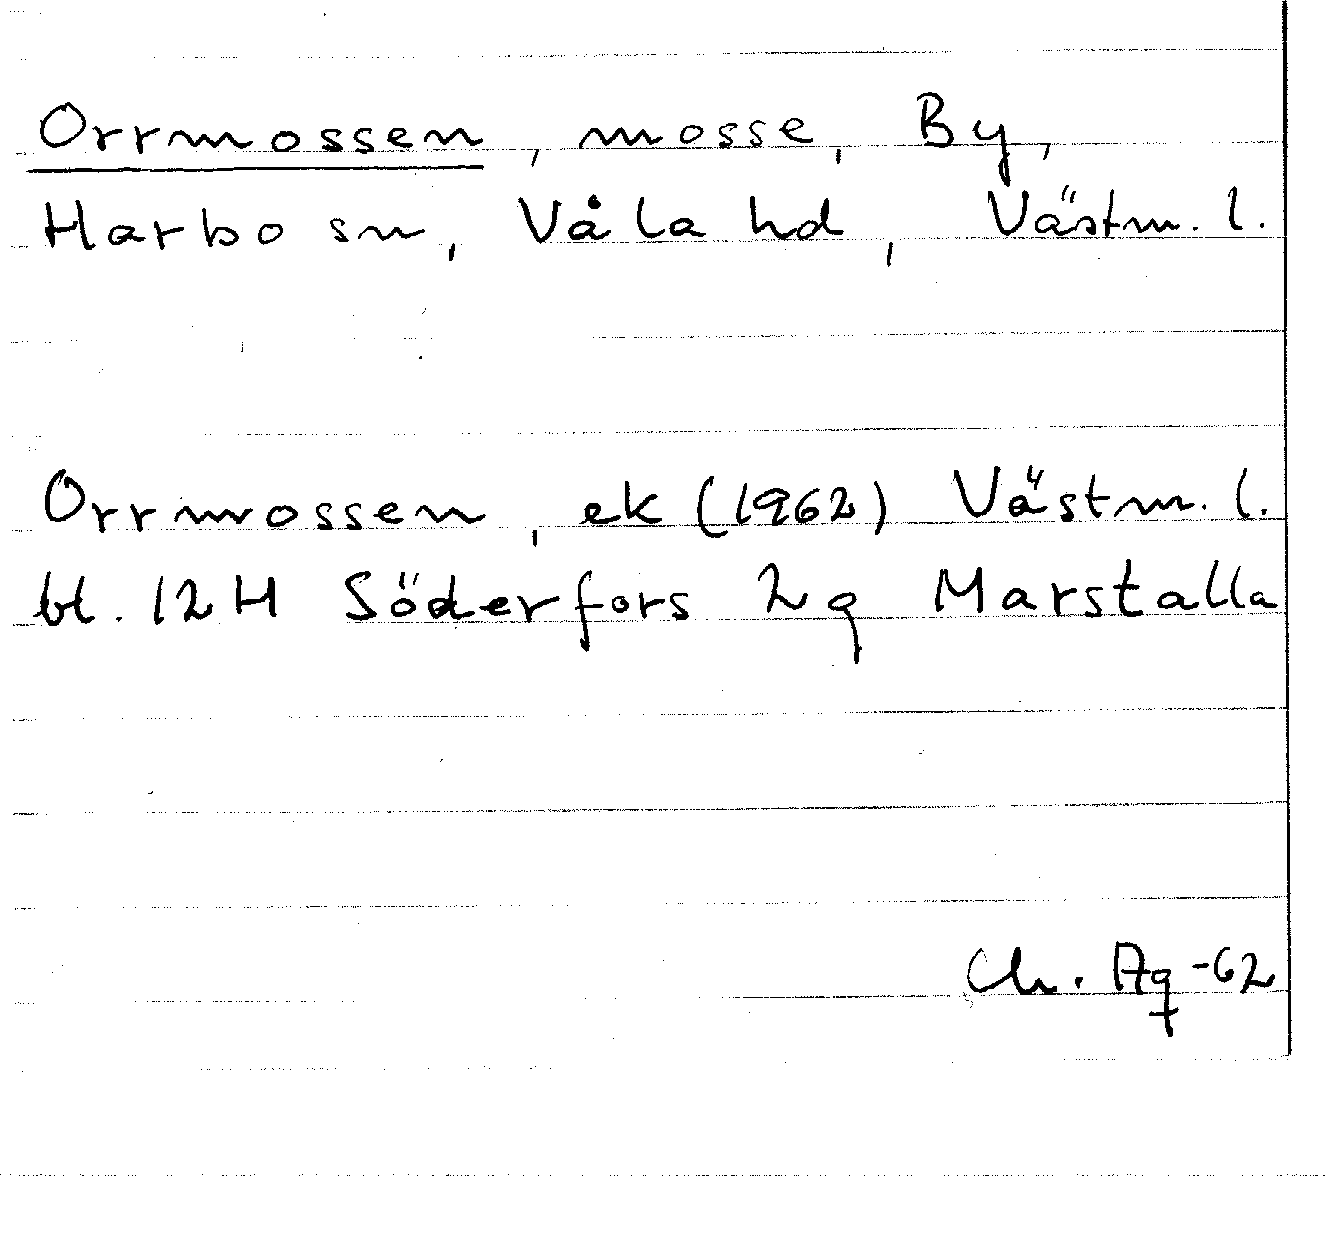 Orrmossen, mosse, By,
Harbo sn, Våla hd, Västm. l.
Orrmossen, ek (1962) Västm. l.
bl. 12H Söderfors 2g Marstalla
Ch. Ag -62